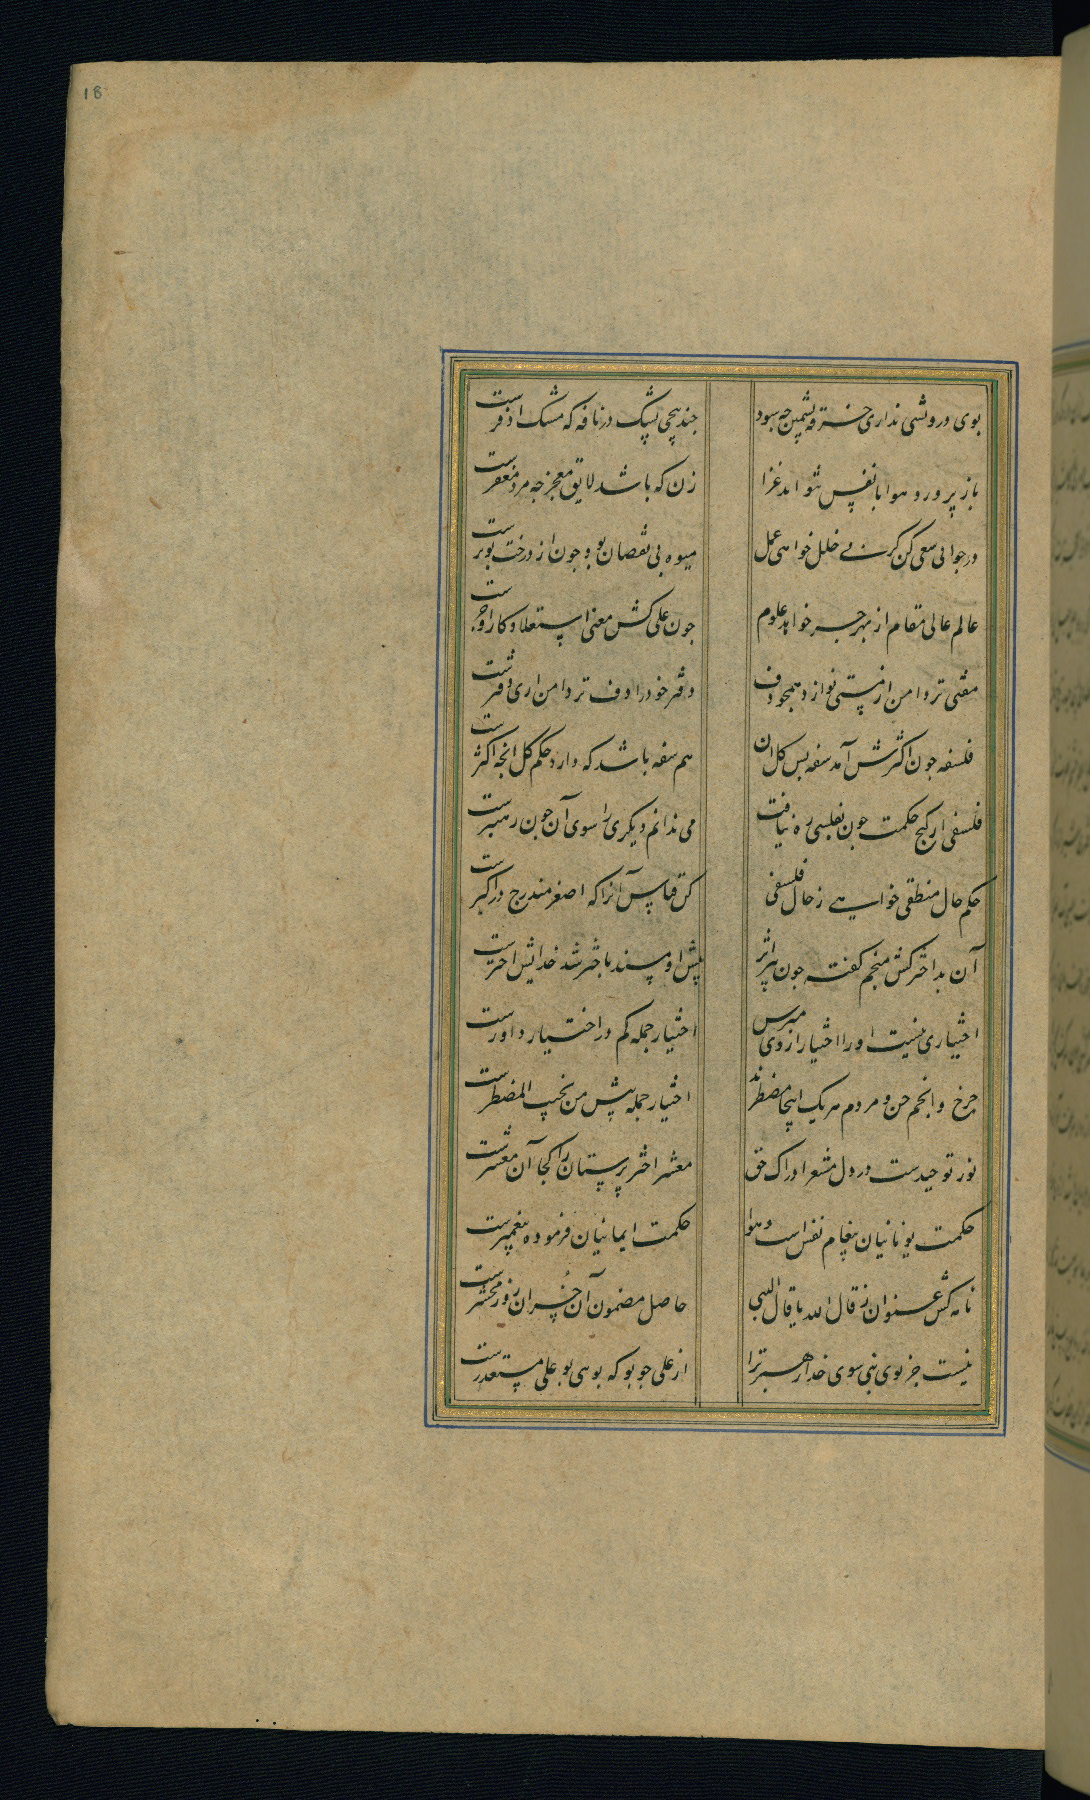 18
بوی درویشی نداری خرقه پشمین چه سود    چند پیچی پشک در نافه که مشک اذفرست
باز پرورد هوا با نفس نتواند غزا    زن که باشد لایق معجر چه مرد مغفرست
در جوانی سعی کن گر بی خلل خواهی عمل    میوه بی نقصان بود چون از درخت نوبرست
عالم عالی مقام از بهر جر خواهد علوم    چون علی کش معنی استعلا و کار او جرست
مفتی تر دامن از پستی نوازد همچو دف    دفتر خود را دف تر دامن اری دفترست
فلسفه چون اکثرش آمد سفه پس کل آن    هم سفه باشد که دارد حکم کل آنچه اکثرست
فلسفی از گنج حکمت چون بفلسی ره نیافت    می ندانم دیگری را سوی آن چون رهبرست
حکم حال منطقی خواهی ز حال فلسفی    کن قیاس آنرا که اصغر مندرج در اکبرست
آن بد اختر کش منجم گفته چون پر اثر    پیش او پسند باختر شد خدایش اخترست
اختیاری نیست او را اختیار از وی مپرس    اختیار جمله کم در اختیار داورست
چرخ و انجم جن و مردم هر یک اینجا مضطرند    اختیار جمله پیش من یجیب المضطرست
نور توحیدست در دل مشعر ادراک حق    معشر اختر پرستان را کجا آن معشرست
حکمت یونانیان پیغام نفس است و هوا    حکمت ایمانیان فرموده پیغمبرست
نامه کش عنوان نه قال الله یا قال النبی    حاصل مضمون آن خسران روز محشرست
نیست جز بوی نبی سوی خدا رهبر ترا    از علی جو بو که بوی بوعلی مستقذرست